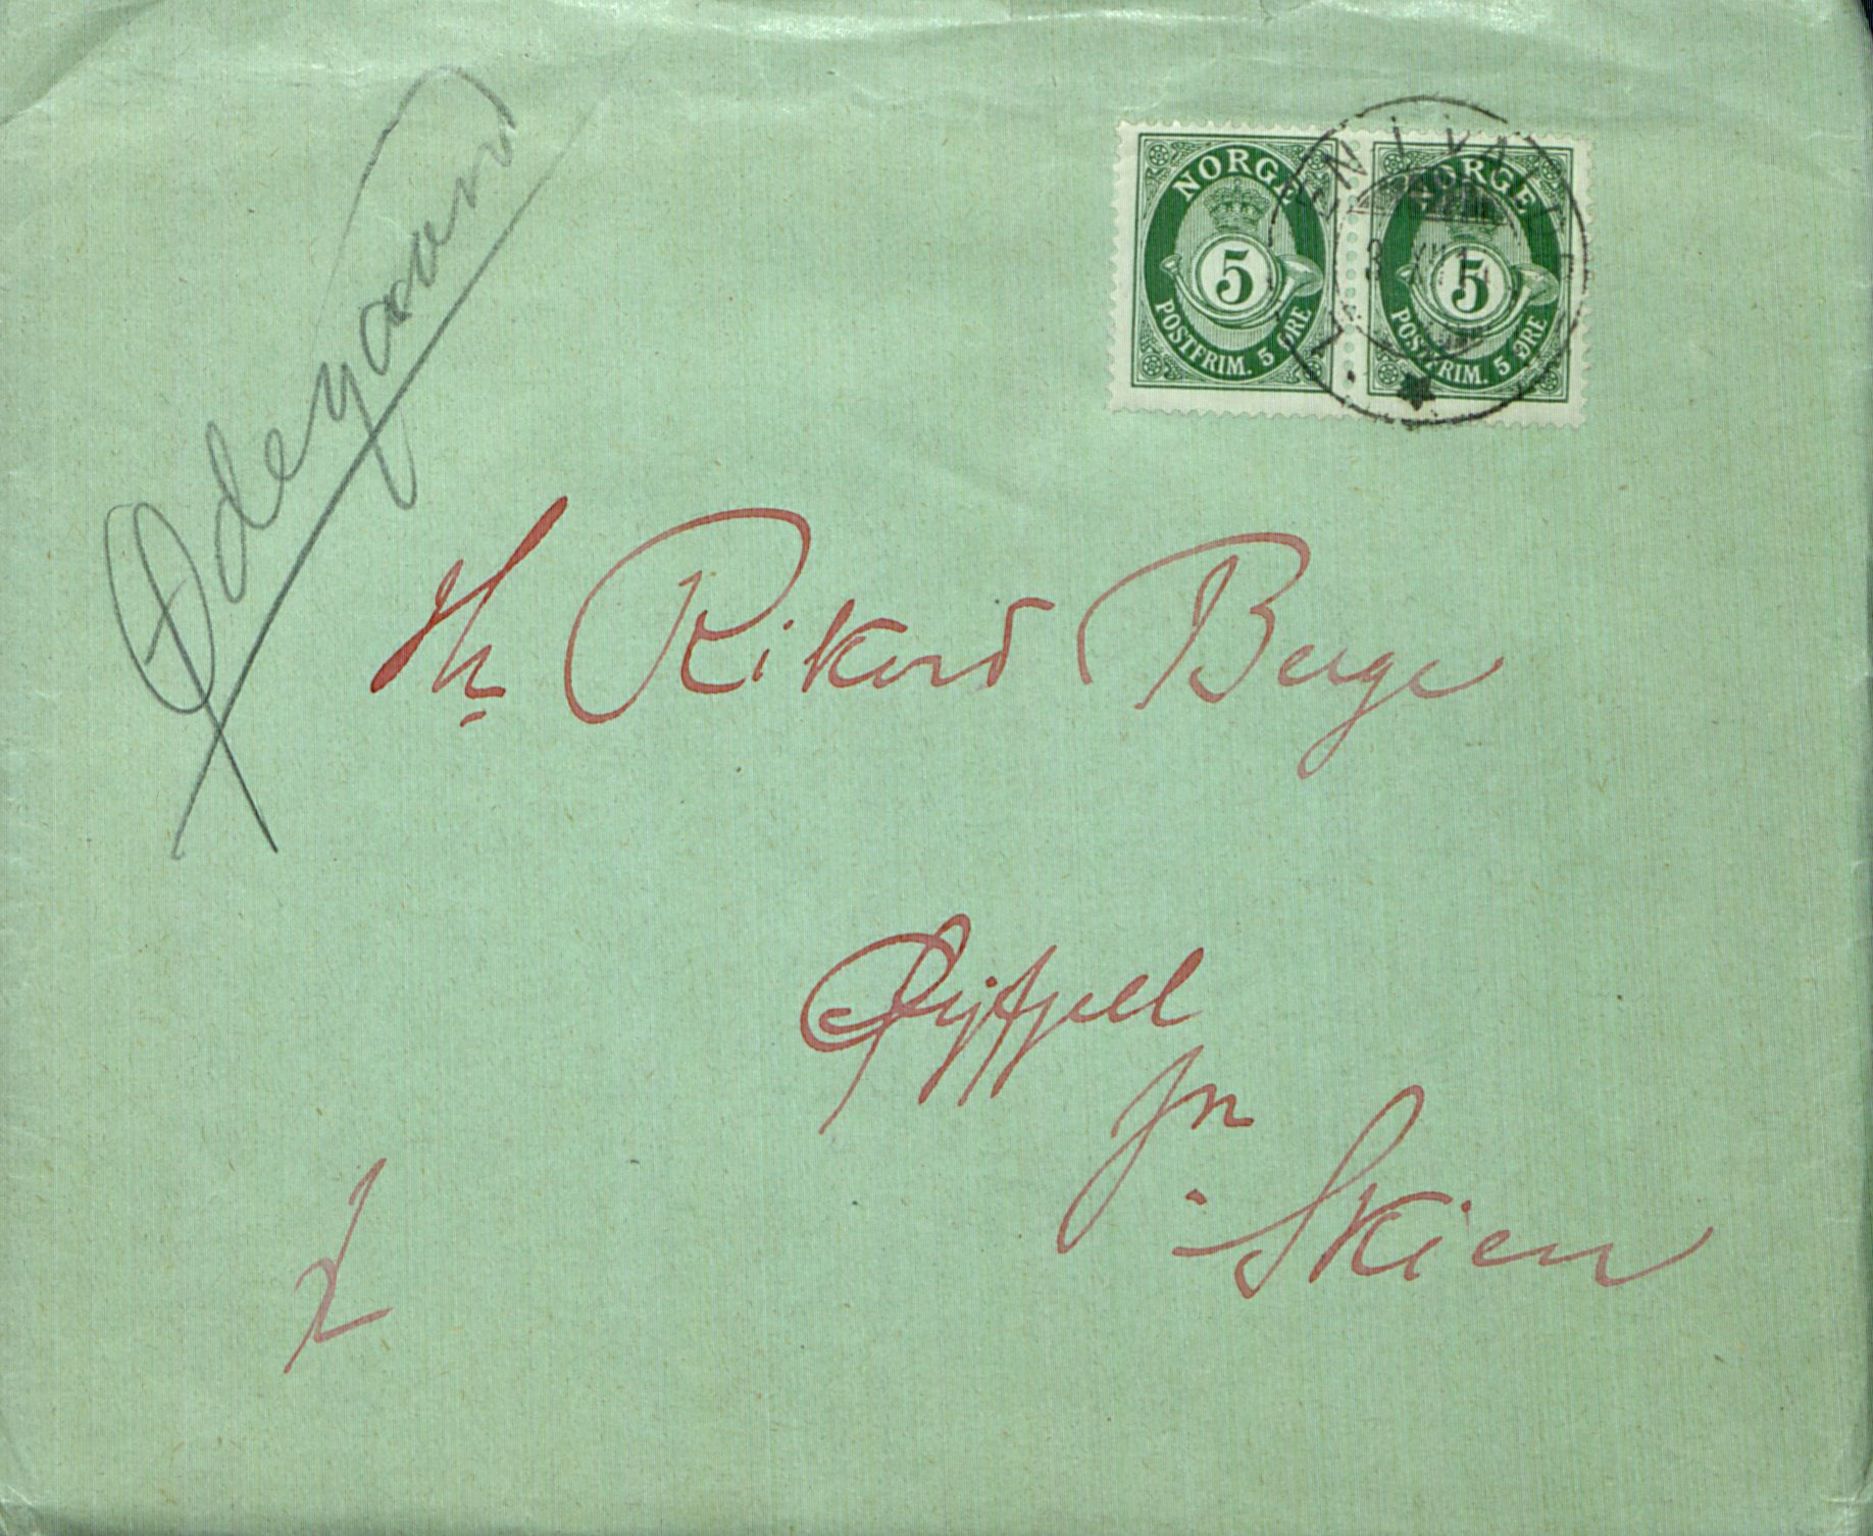 Ødegaard
NORGE
5
POSTFRIM. 5 ØRE
NORGE
5
POSTFRIM. 5 ØRE
Hr. Rikard Berge
pr
Skien